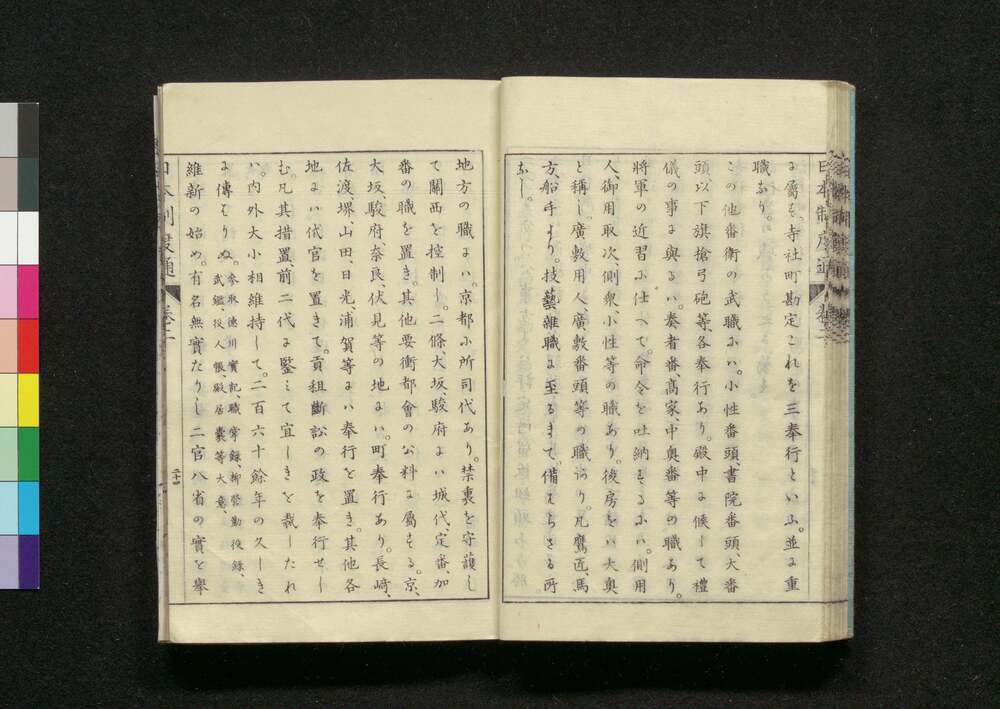 日本制度通
に屬も、寺社町勘定これを三奉行といふ。並に重
職なり。
この他番衛の武職には、小性番頭、書院番頭、大番
頭以下旗槍弓砲等、各奉行あり。殿中に候して禮
儀の事に與るハ。奏者番、高家中奥番等の職あり。
將軍の近習に仕へて。命令を吐納もるふハ。側用
人、御用取次、側衆、小性等の職あり。後房をハ大奥
と稱し。廣敷用人、廣敷番頭等の職あり。凡鷹匠、馬
方、船手より。技藝雜職に至るまで。備はらさる所
なし。
地方の職にハ。京都に所司代あり。禁裏を守護し
て關西を控制し。二條、大坂、駿府にハ城代、定番、加
番の職を置き。其他要衝都會の公料に屬もる。京、
大坂、駿府、奈良、伏見等の地にハ。町奉行あり。長崎、
佐渡、堺、山田、日光、浦賀等にハ奉行を置き。其他各
地にハ代官を置きて。貢租斷訟の政を奉行せし
む凡其措置、前二代に鑒みて宜しきを裁したれ
ハ。内外大小相維持して。二百六十餘年の久しき
に傳はりぬ。參取德川實記、職掌録、柳營勤役録、
武鑑、役人帳、殿居嚢等大意、
維新の始め。有名無實たりし二官八省の實を擧
日本制度通 卷二
二十四